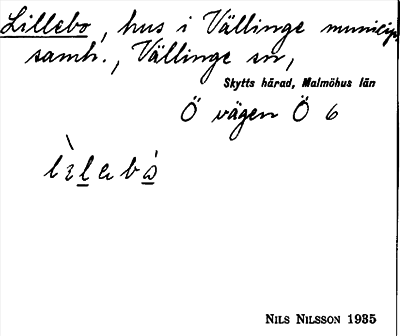 Lillebo, hus i Vällinge municip.
samh., Vällinge sn,
Skytts härad, Malmöhus län
Ö vägen Ö 6
NILS NILSSON 1935